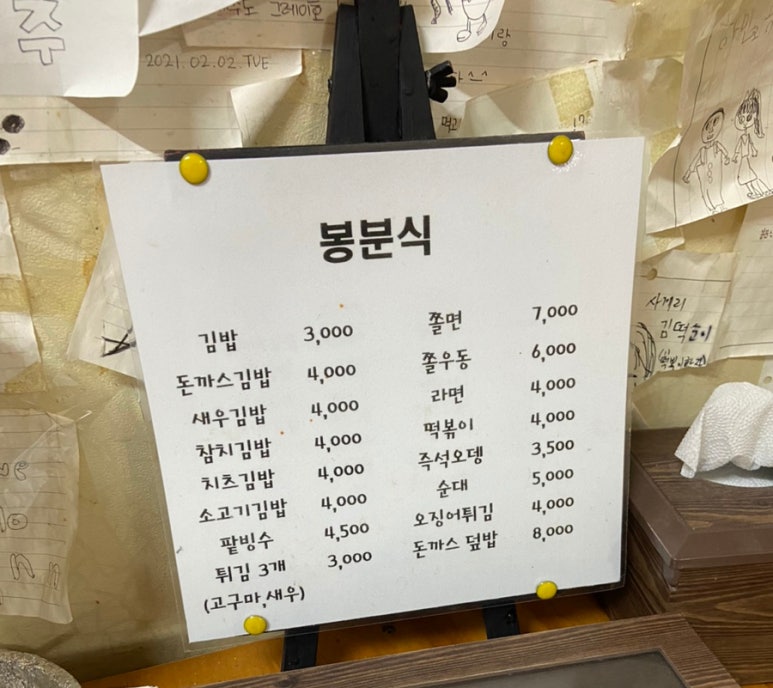 주
2021.02.02.TUE
봉분식
김밥 3,000
돈까스김밥 4,000
새우김밥 4,000
참치김밥 4,000
치츠김밥 4,000
소고기김밥 4,000
팥빙수 4,500
튀김 3개 3,000
(고구마,새우)
쫄면 7,000
쫄우동 6,000
라면 4,000
떡볶이 4,000
즉석오뎅 3,500
순대 5,000
오징어튀김 4,000
돈까스 덮밥 8,000
사거리